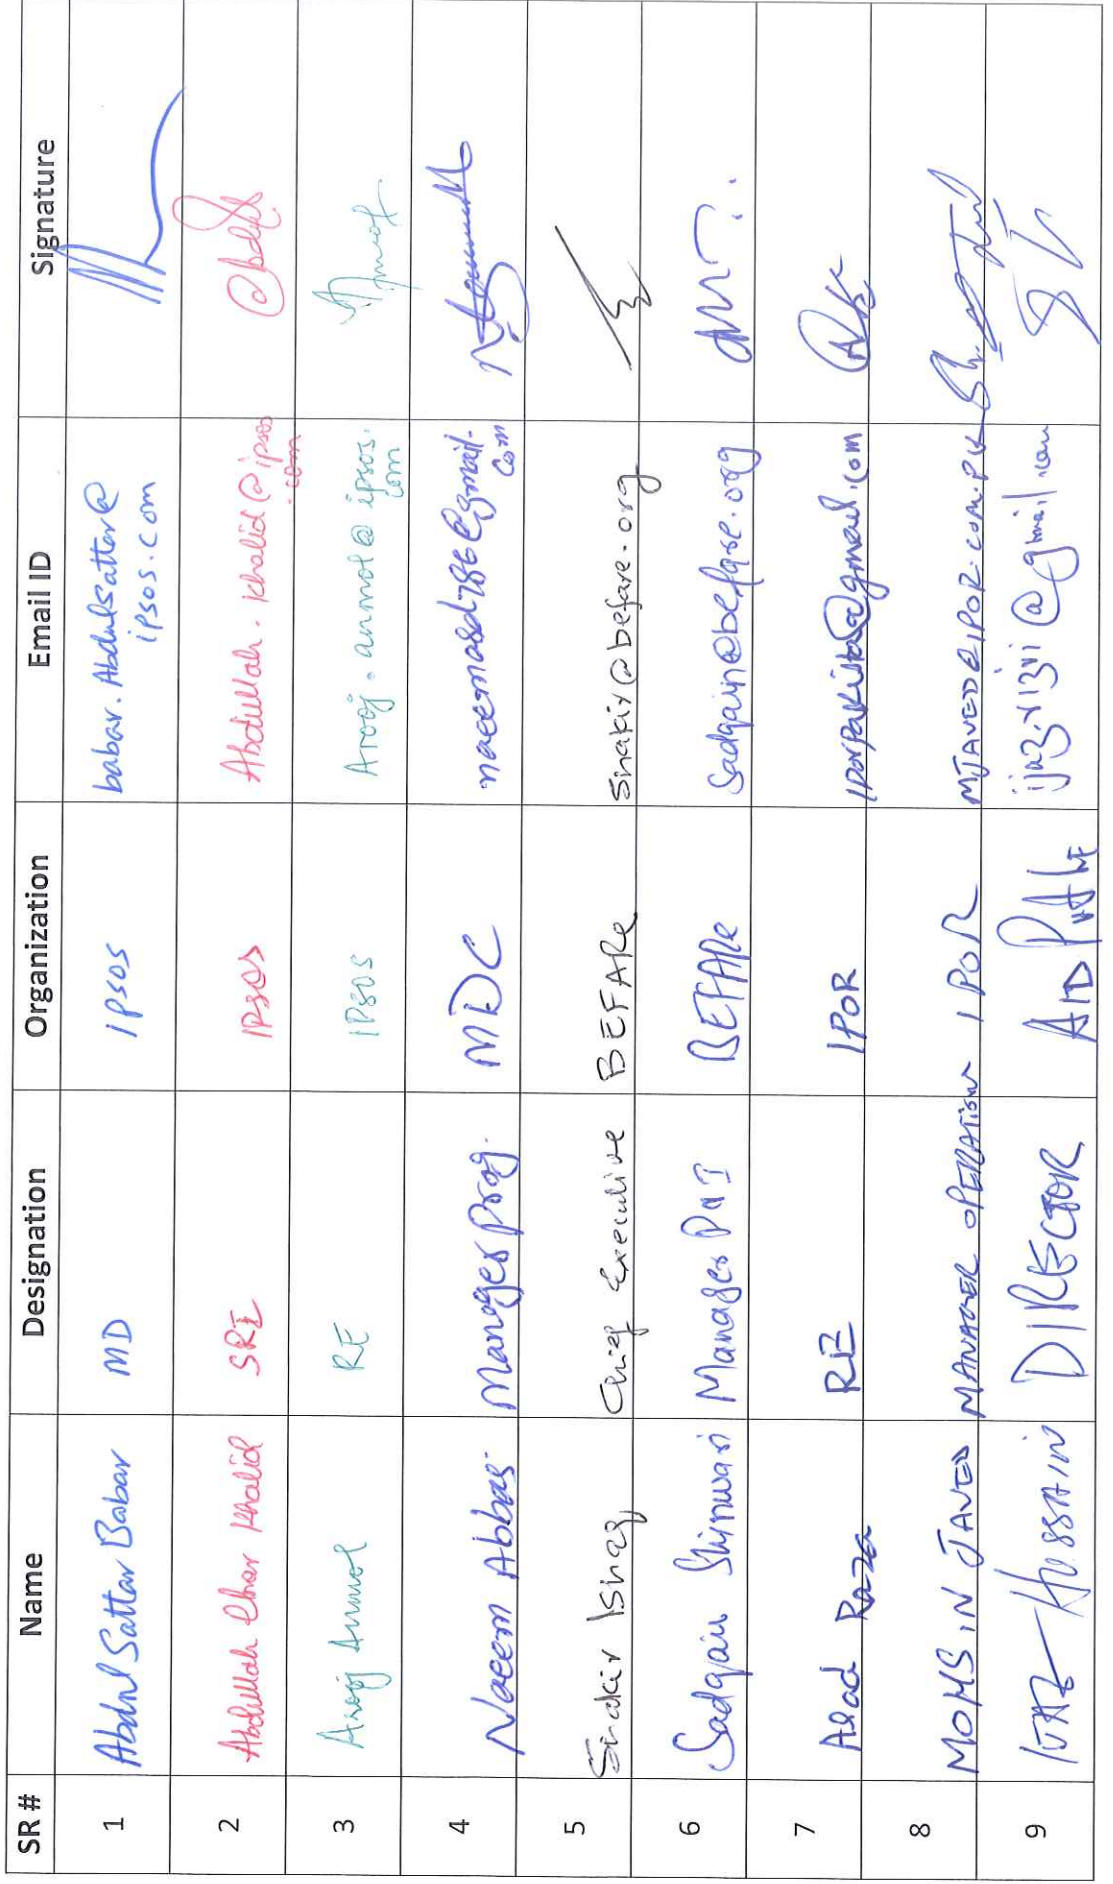 SR # Name Designation Organization Email ID Signature
1 Abdul Sattar Babar MD IPSOS babar.Abdulsattar@
ipsos.com
2 Abdullah Khalid SRE IPSOS Abdullah.khalid@ipsos
.com
3 Arooj Anmol RE IPSOS Arooj.anmol@ipsos.
com Anmol
4 Naeem Abbas Manager Prog. MDC naeemasd786@gmail.
com
5 Shakir Ishaq Chief Executive BEFARe Shakir@befare.org
6 Sadqain Shinwari Manager BEFARe Sadqain@befare.org
7 Asad Raza RE IPOR
8 MOHSIN JAVED MANAGER OPERATION IPOR MJAVED@IPOR.COM.PK
9 IJAZ HUSSAIN DIRECTOR AID ijaz.rizvi@gmail.com